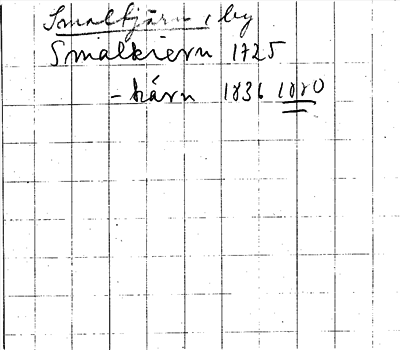 Smaltjärn, by
Smalkiern 1725
-kärn 1836 1880